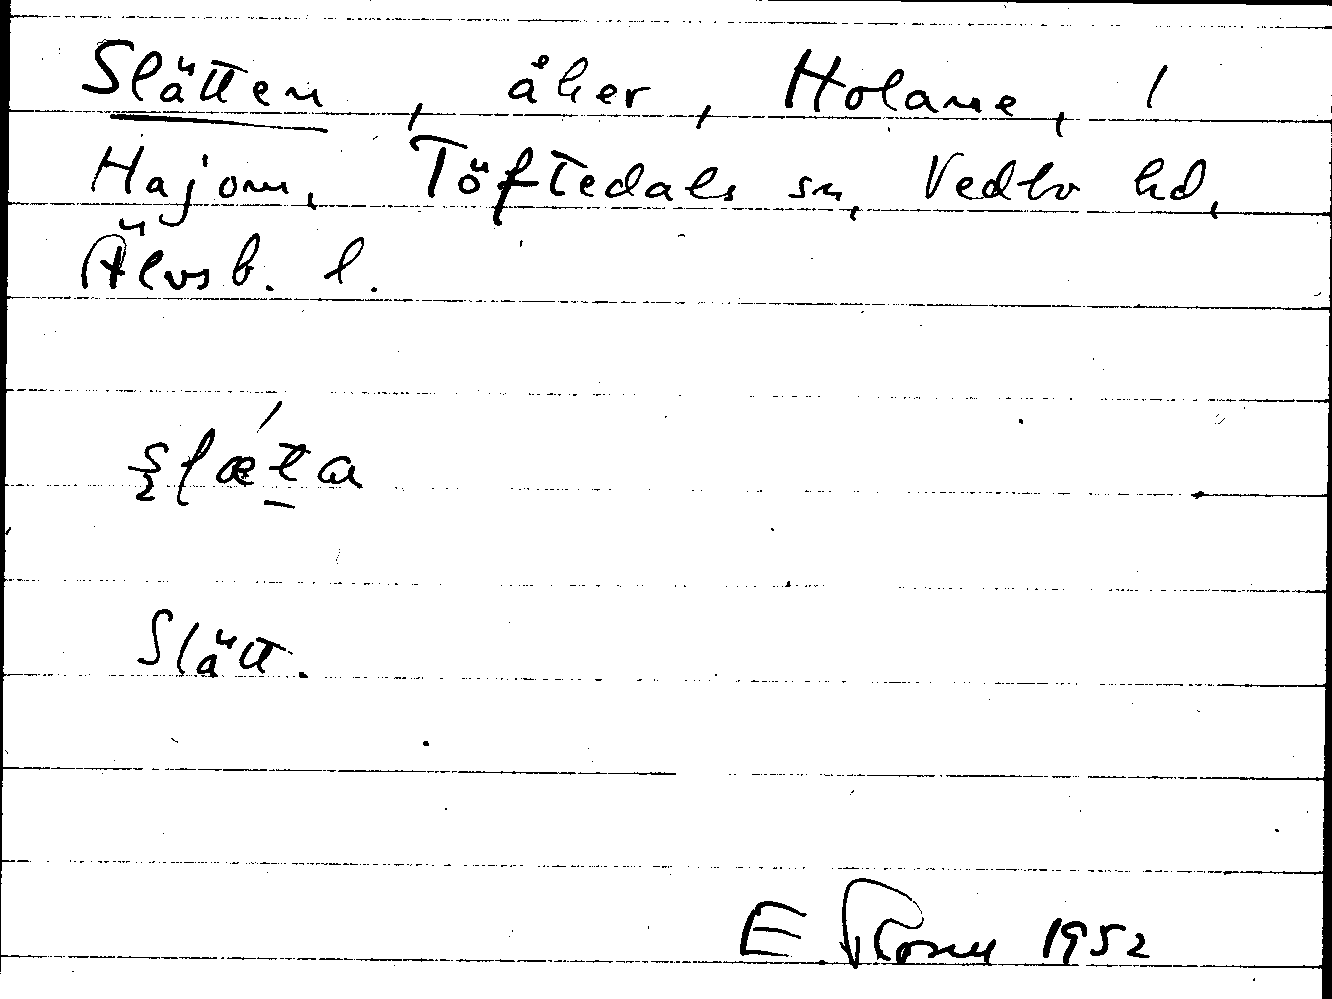 Slätten, åker, Holane, 1
Hajom, Töftedals sn, Vedbo hd,
Älvsb. l.
slǽta
Slätt.
E. 1952